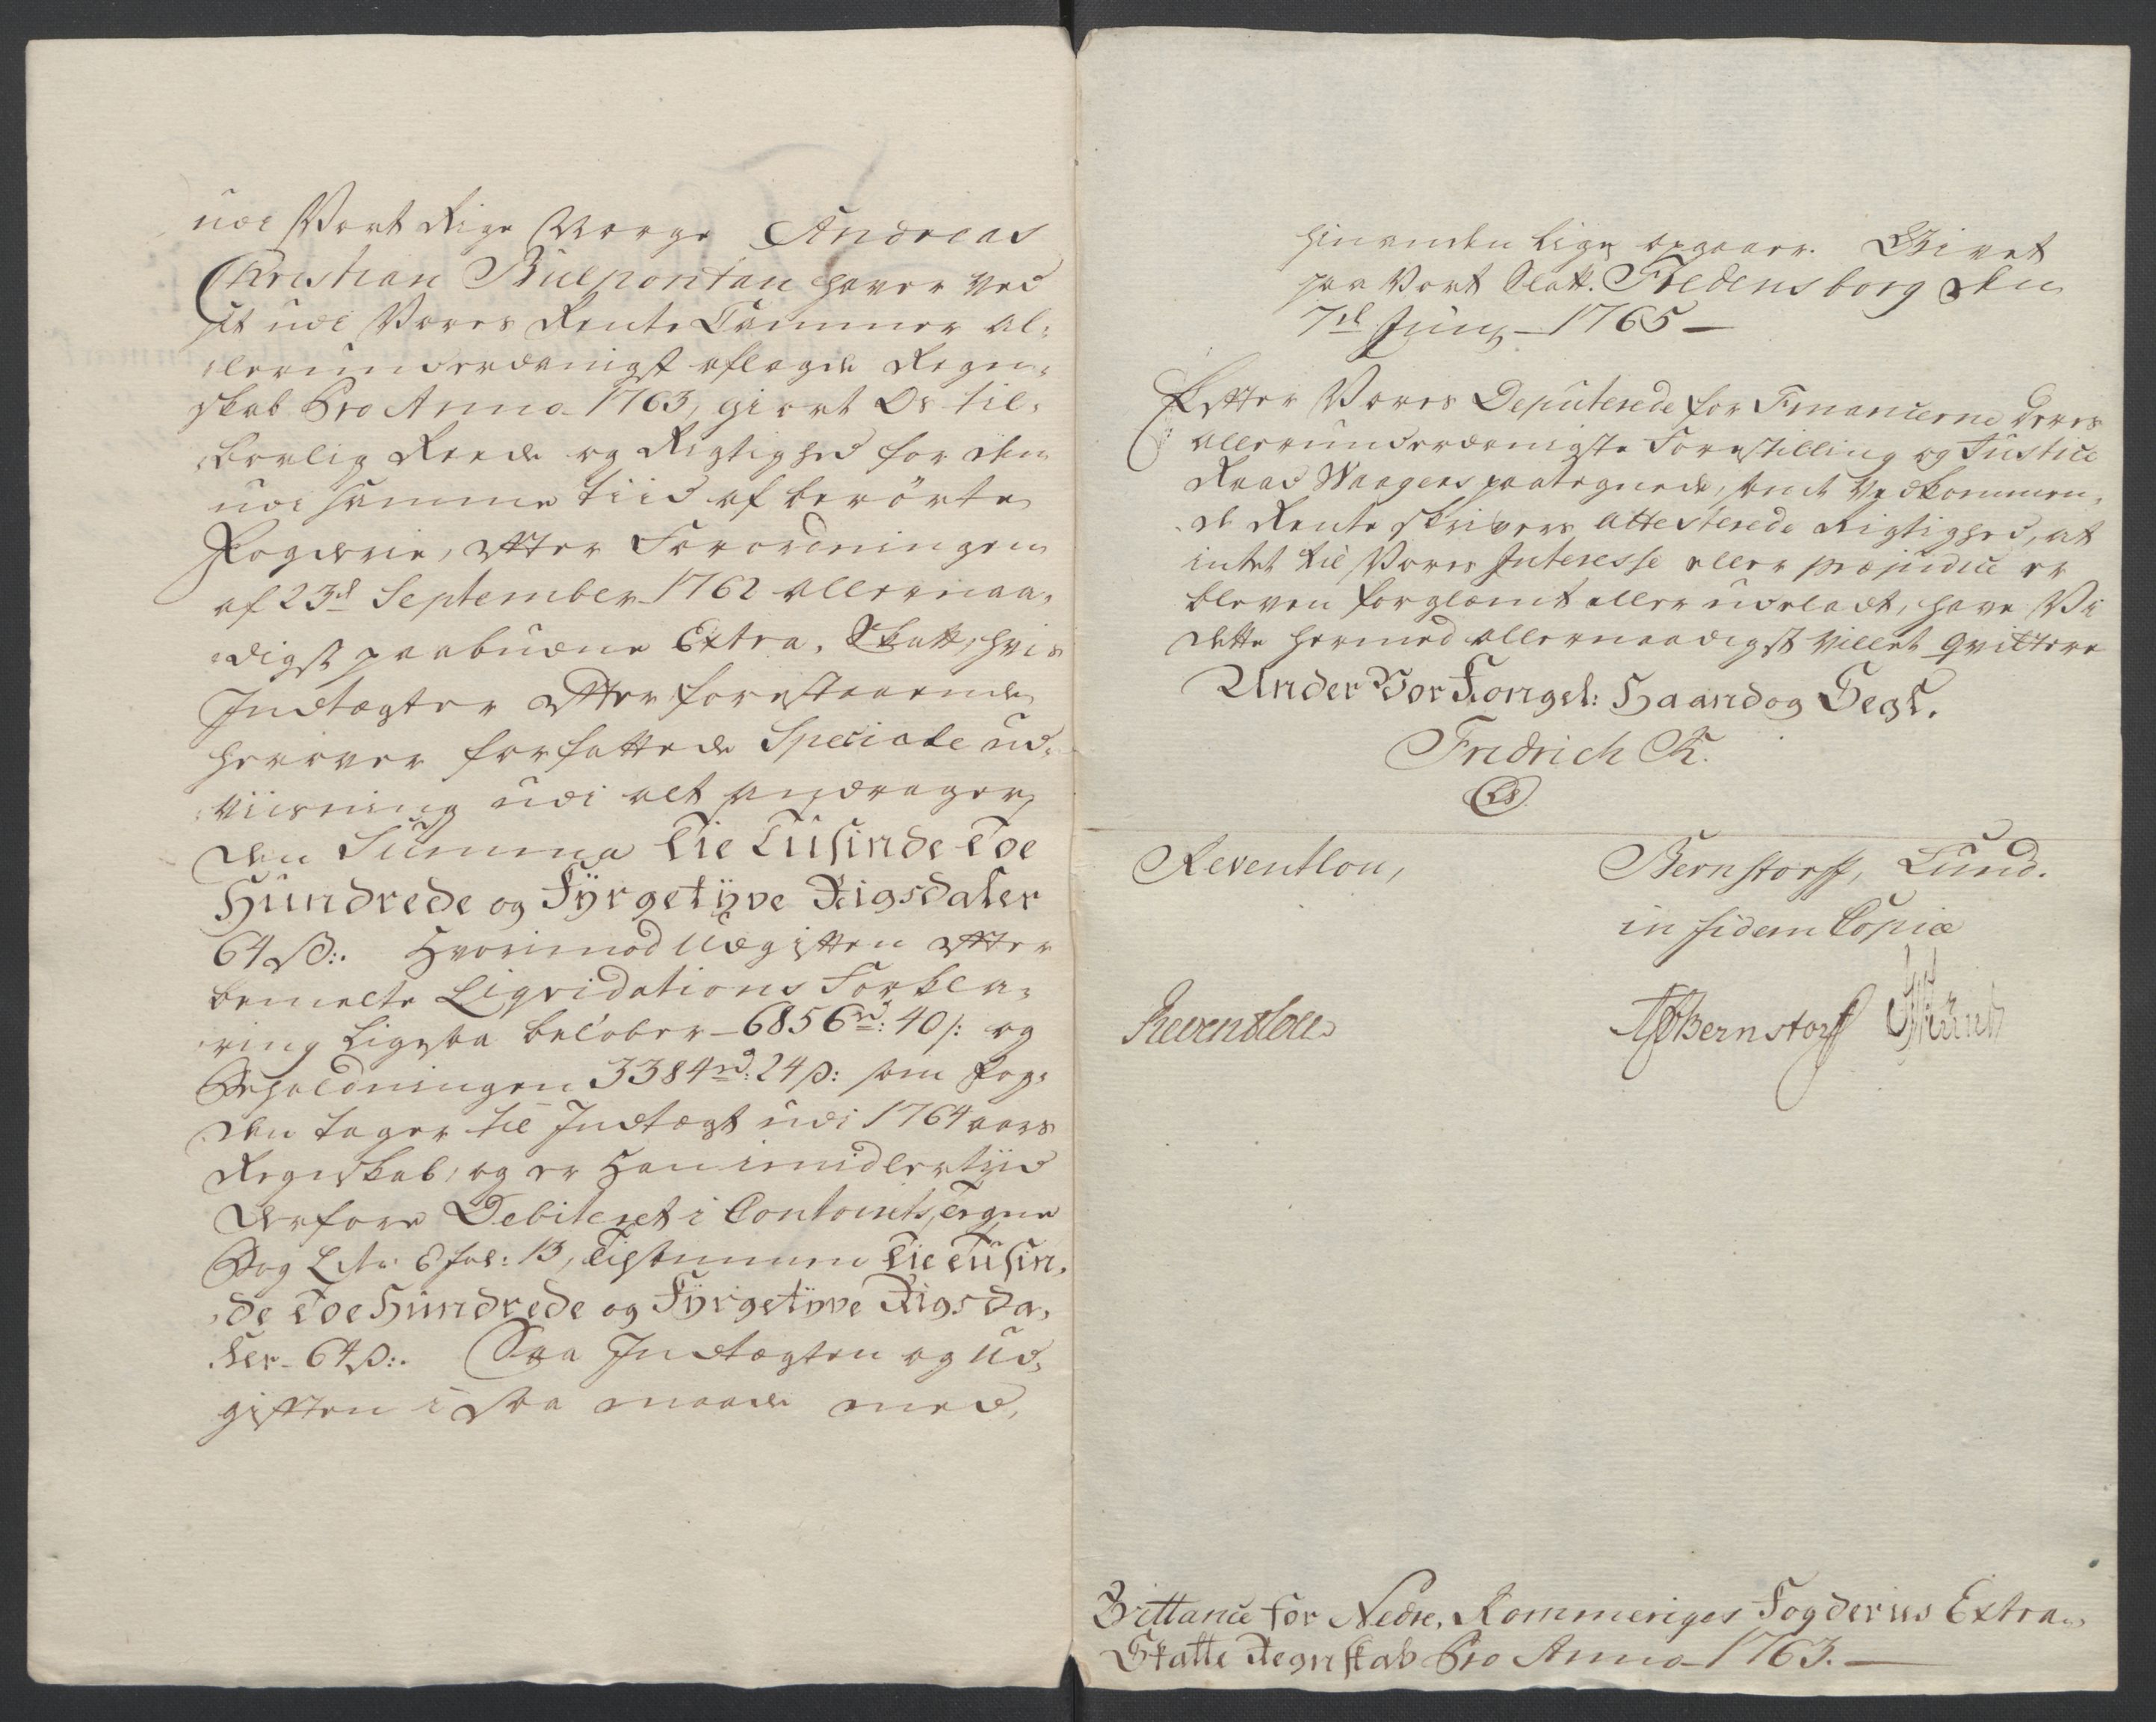 udi Vort Rige Norge Andreas
Christian Bülpontan haver ved
sit udi Vores Rente Cammer al-
lerunderdanigst aflagde Regn-
skab Pro Anno 1763, giort Os til-
børlig Reede og Rigtighed for den
udi samme tiid af berörte
Fogderie, efter Forordningen
af 23d September 1762 allernaa-
digst paabudne Extra-Skatt, hvis
Indtægter efter forestaaende
herover forfattede Speciale ud-
viisning udi alt andrager
den Summa Tie Tusinde Toe
Hundrede og Fyrgetyve Rigsdaler
64 ß:. Hvorimod Udgiften efter
bemelte Liqvidations Forkla-
ring Ligesaa beløber 6856 rd: 40 ß: og
Beholdningen 3384 rd: 24 ß: som Fog-
den tager til Indtægt udi 1764 aars
Regnskab, og er Han imidlertiid
derfore Debiteret i Contoirets Egne
Bog Litr: E fol: 13, tilsammen Tie Tusin-
de Toe Hundrede og Fyrgetyve Rigsda-
ler 64 ß:. Saa Indtægten og Ud-
giften i saa maade med
hinanden lige opgaaer. Givet
paa Vort Slott Fredensborg den
7d Juny 1765
Efter Vores Deputerede for Financerne deres
allerunderdanigste Forestilling og Justice
Raad Waagees paategnede, samt Vedkommen-
de Renteskrivers attesterede Rigtighed, at
intet til Vores Interesse eller præjudice er
bleven forglemt eller udeladt, have Vi
dette hermed allernaadigst villet qvittere
Under Vor Kongel: Haand og Segl.
Fridrich R.
LS
Reventlou,
Bernstorff, Lund.
in fidem Copiæ
Reventlou
Bernstorff
Lund
Qvittance for Nedre Rommeriges Fogderies Extra
Skatte Regnskab Pro Anno 1763.